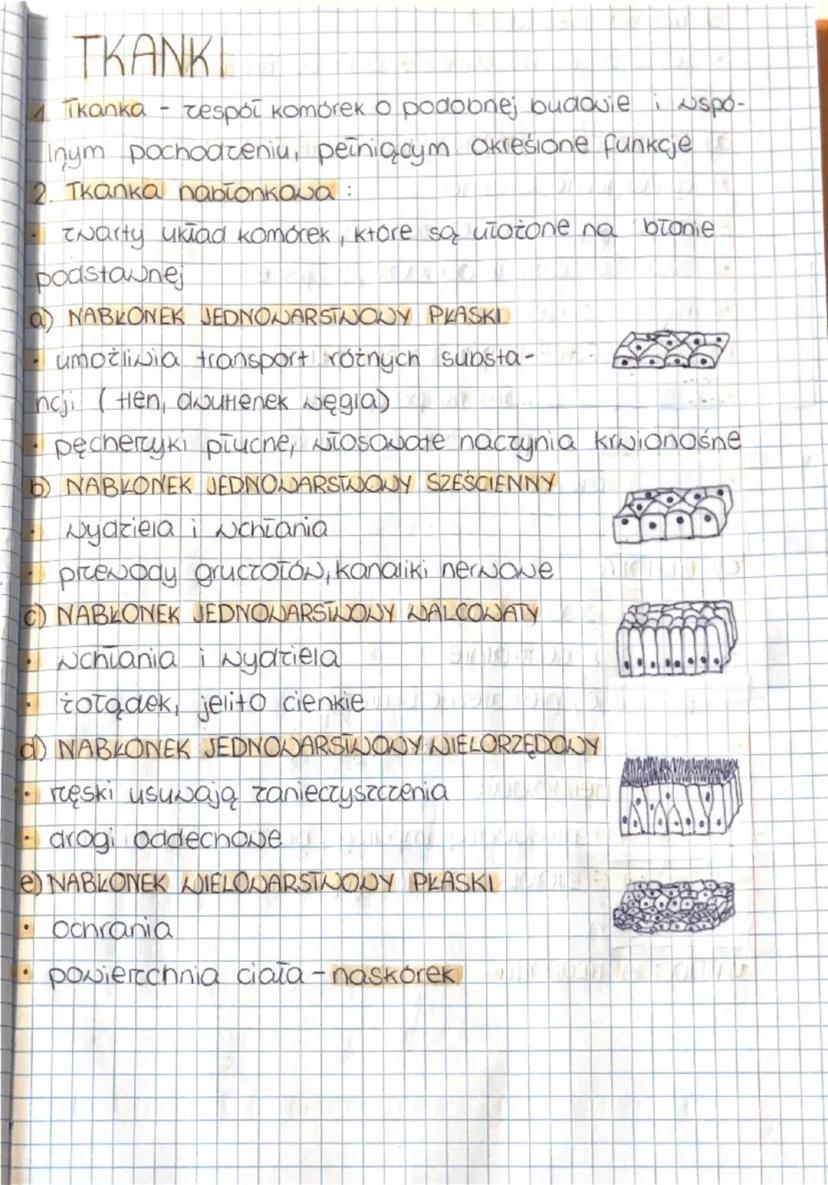 TKANKI
1. Tkanka - zespół komórek o podobnej budowie i wspó-
lnym pochodzeniu, pełniącym określone funkcje
2. Tkanka nabłonkowa :
• zwarty układ komórek, które są ułożone na błonie
podstawnej
a) NABŁONEK JEDNOWARSTWOWY PŁASKI
• umożliwia transport różnych substa-
ncji (tlen, dwutlenek węgla)
• pęcherzyki płucne, włosowate naczynia krwionośne
b) NABŁONEK JEDNOWARSTWOWY SZEŚCIENNY
• wydziela i wchłania
• przewody gruczołów, kanaliki nerwowe
c) NABŁONEK JEDNOWARSTWOWY WALCOWATY
• wchłania i wydziela
• żołądek, jelito cienkie
d) NABŁONEK JEDNOWARSTWOWY WIELORZĘDOWY
• rzęski usuwają zanieczyszczenia
• drogi oddechowe
e) NABŁONEK WIELOWARSTWOWY PŁASKI
• ochrania
• powierzchnia ciała - naskórek